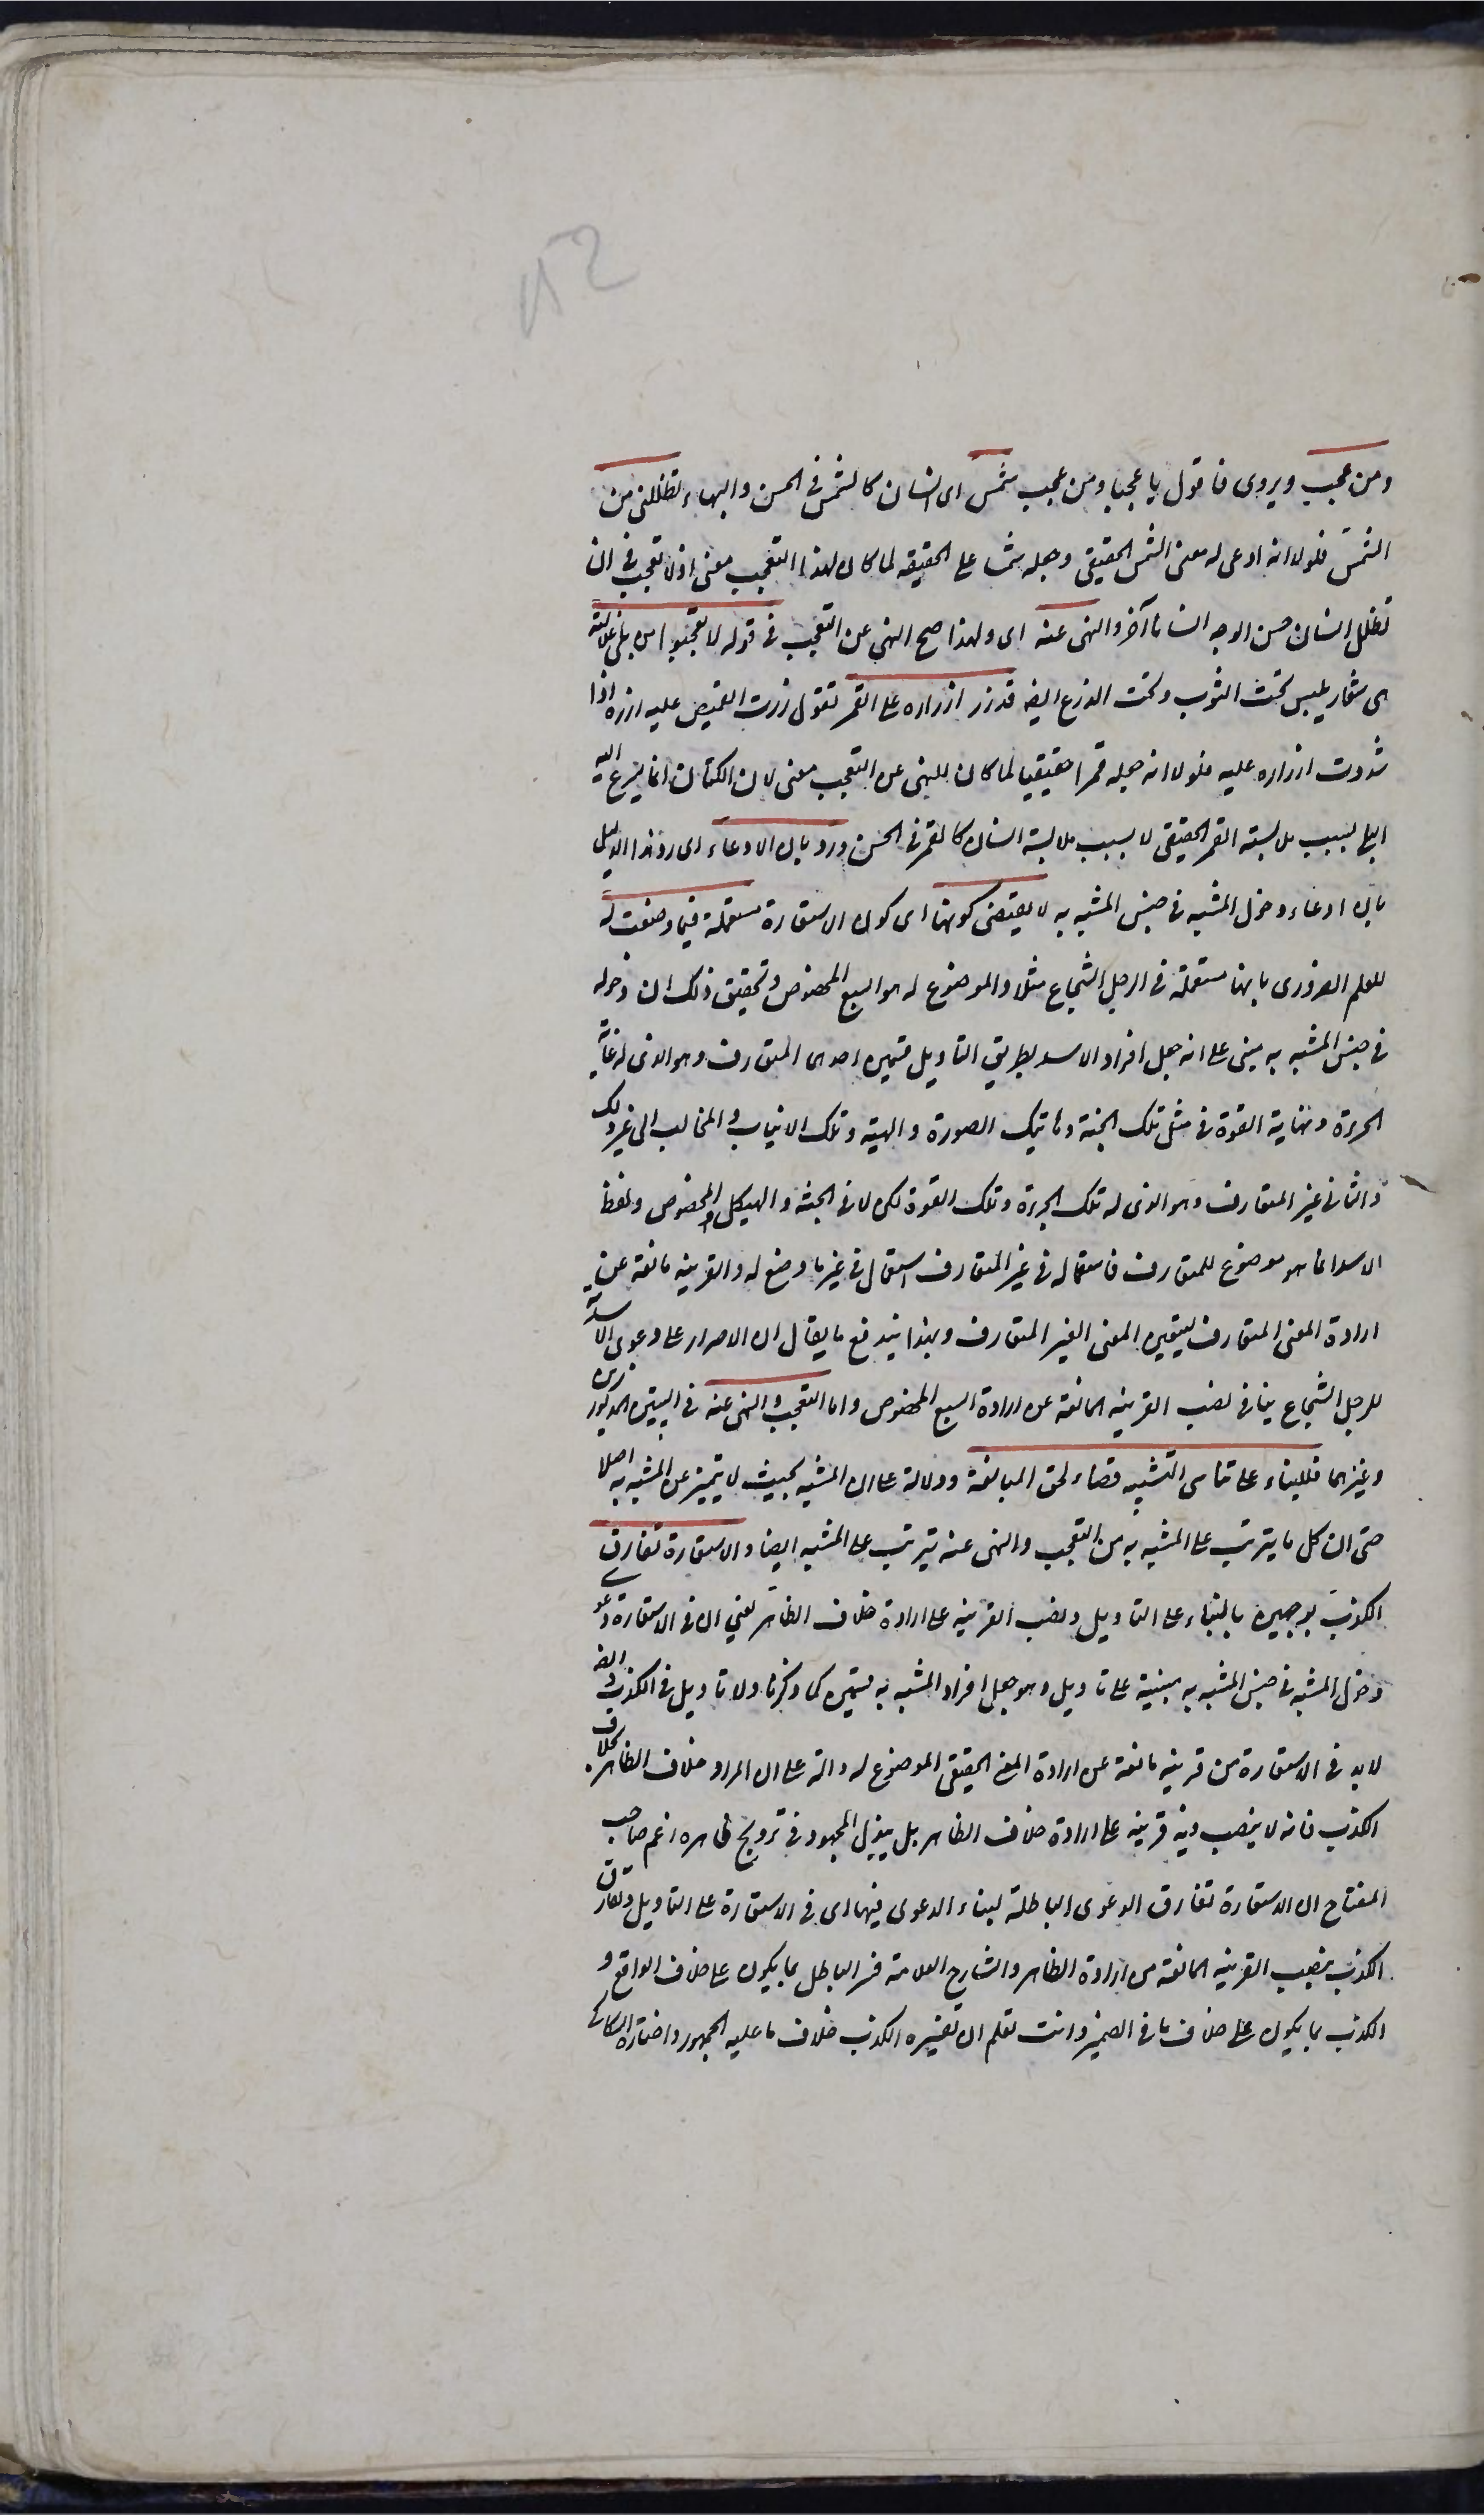 ومن عجب ويروى فاقول يا عجبا ومن عجب شمس اى انسان كالشمس فى الحسن والبهاء تظللنى من
الشمس فلولا انه ادعى له معنى الشمس الحقيقى وجعله شمسا على الحقيقه لما كان لهذا التعجب معنى اذ لا تعجب فى ان
تظلل انسان حسن الوجه انسانا آخر والنهى عنه اى ولهذا صح النهى عن التعجب فى قوله لا تعجبوا من بلى غلالته
هى شعار يلبس تحت الثوب وتحت الدرع ايضا قد زر ازراره على القمر تقول زررت القميص عليه ازره اذا
شددت ازراره عليه فلولا انه جعله قمرا حقيقيا لما كان للنهى عن التعجب معنى لان الكتان انما يسرع اليه
البلى بسبب ملابسة القمر الحقيقى لا بسبب ملابسة انسان كالقمر فى الحسن ورد بان الادعاء اى رد هذا الدليل
بان ادعاء دخول المشبه فى جنس المشبه به لا يقتضى كونها اى كون الاستعارة مستعملة فيما وضعت له
للعلم الضرورى بانها مستعملة فى الرجل الشجاع مثلا والموضوع له هو السبع المخصوص وتحقيق ذلك ان دخوله
فى جنس المشبه به مبنى على انه جعل افراد الاسد بطريق التاويل قسمين احدهما المتعارف وهو الذى له غاية
الجرءة ونهاية القوة فى مثل تلك الجثة وهاتيك الصورة والهيئة وتلك الانياب والمخالب الى غير ذلك
والثانى غير المتعارف وهو الذى له تلك الجرءة وتلك القوة لكن لا فى الجثة والهيكل المخصوص ولفظ
الاسد انما هو موضوع للمتعارف فاستعماله فى غير المتعارف استعمال فى غير ما وضع له والقرينه مانعة عن
ارادة المعنى المتعارف ليتعين المعنى الغير المتعارف وبهذا يندفع ما يقال ان الاصرار على دعوى الاسدية
للرجل الشجاع ينافى نصب القرينه المانعة عن ارادة السبع المخصوص واما التعجب والنهى عنه فى البيتين المذكورين
وغيرهما فللبناء على تناسى التشبيه قضاء لحق المبالغة ودلالة على ان المشبه بحيث لا يتميز عن المشبه به اصلا
حتى ان كل ما يترتب على المشبه به من التعجب والنهى عنه يترتب على المشبه ايضا والاستعارة تفارق
الكذب بوجهين بالبناء على التاويل ونصب القرينه على ارادة خلاف الظاهر يعنى ان فى الاستعارة دعوى
دخول المشبه فى جنس المشبه به مبنية على تاويل وهو جعل افراد المشبه به قسمين كما ذكرنا ولا تاويل فى الكذب وايضا
لابد فى الاستعارة من قرينه مانعة عن ارادة المعنى الحقيقى الموضوع له دالة على ان المراد خلاف الظاهر بخلاف
الكذب فانه لا ينصب فيه قرينه على ارادة خلاف الظاهر بل يبذل المجهود فى ترويج ظاهره زعم صاحب
المفتاح ان الاستعارة تفارق الدعوى الباطلة لبناء الدعوى فيها اى فى الاستعارة على التاويل وتفارق
الكذب بنصب القرينه المانعة من ارادة الظاهر والشارح العلامة فسر الباطل بما يكون على خلاف الواقع و
الكذب بما يكون على خلاف ما فى الضمير وانت تعلم ان تفسيره الكذب خلاف ما عليه الجمهور واختاره السكاكى